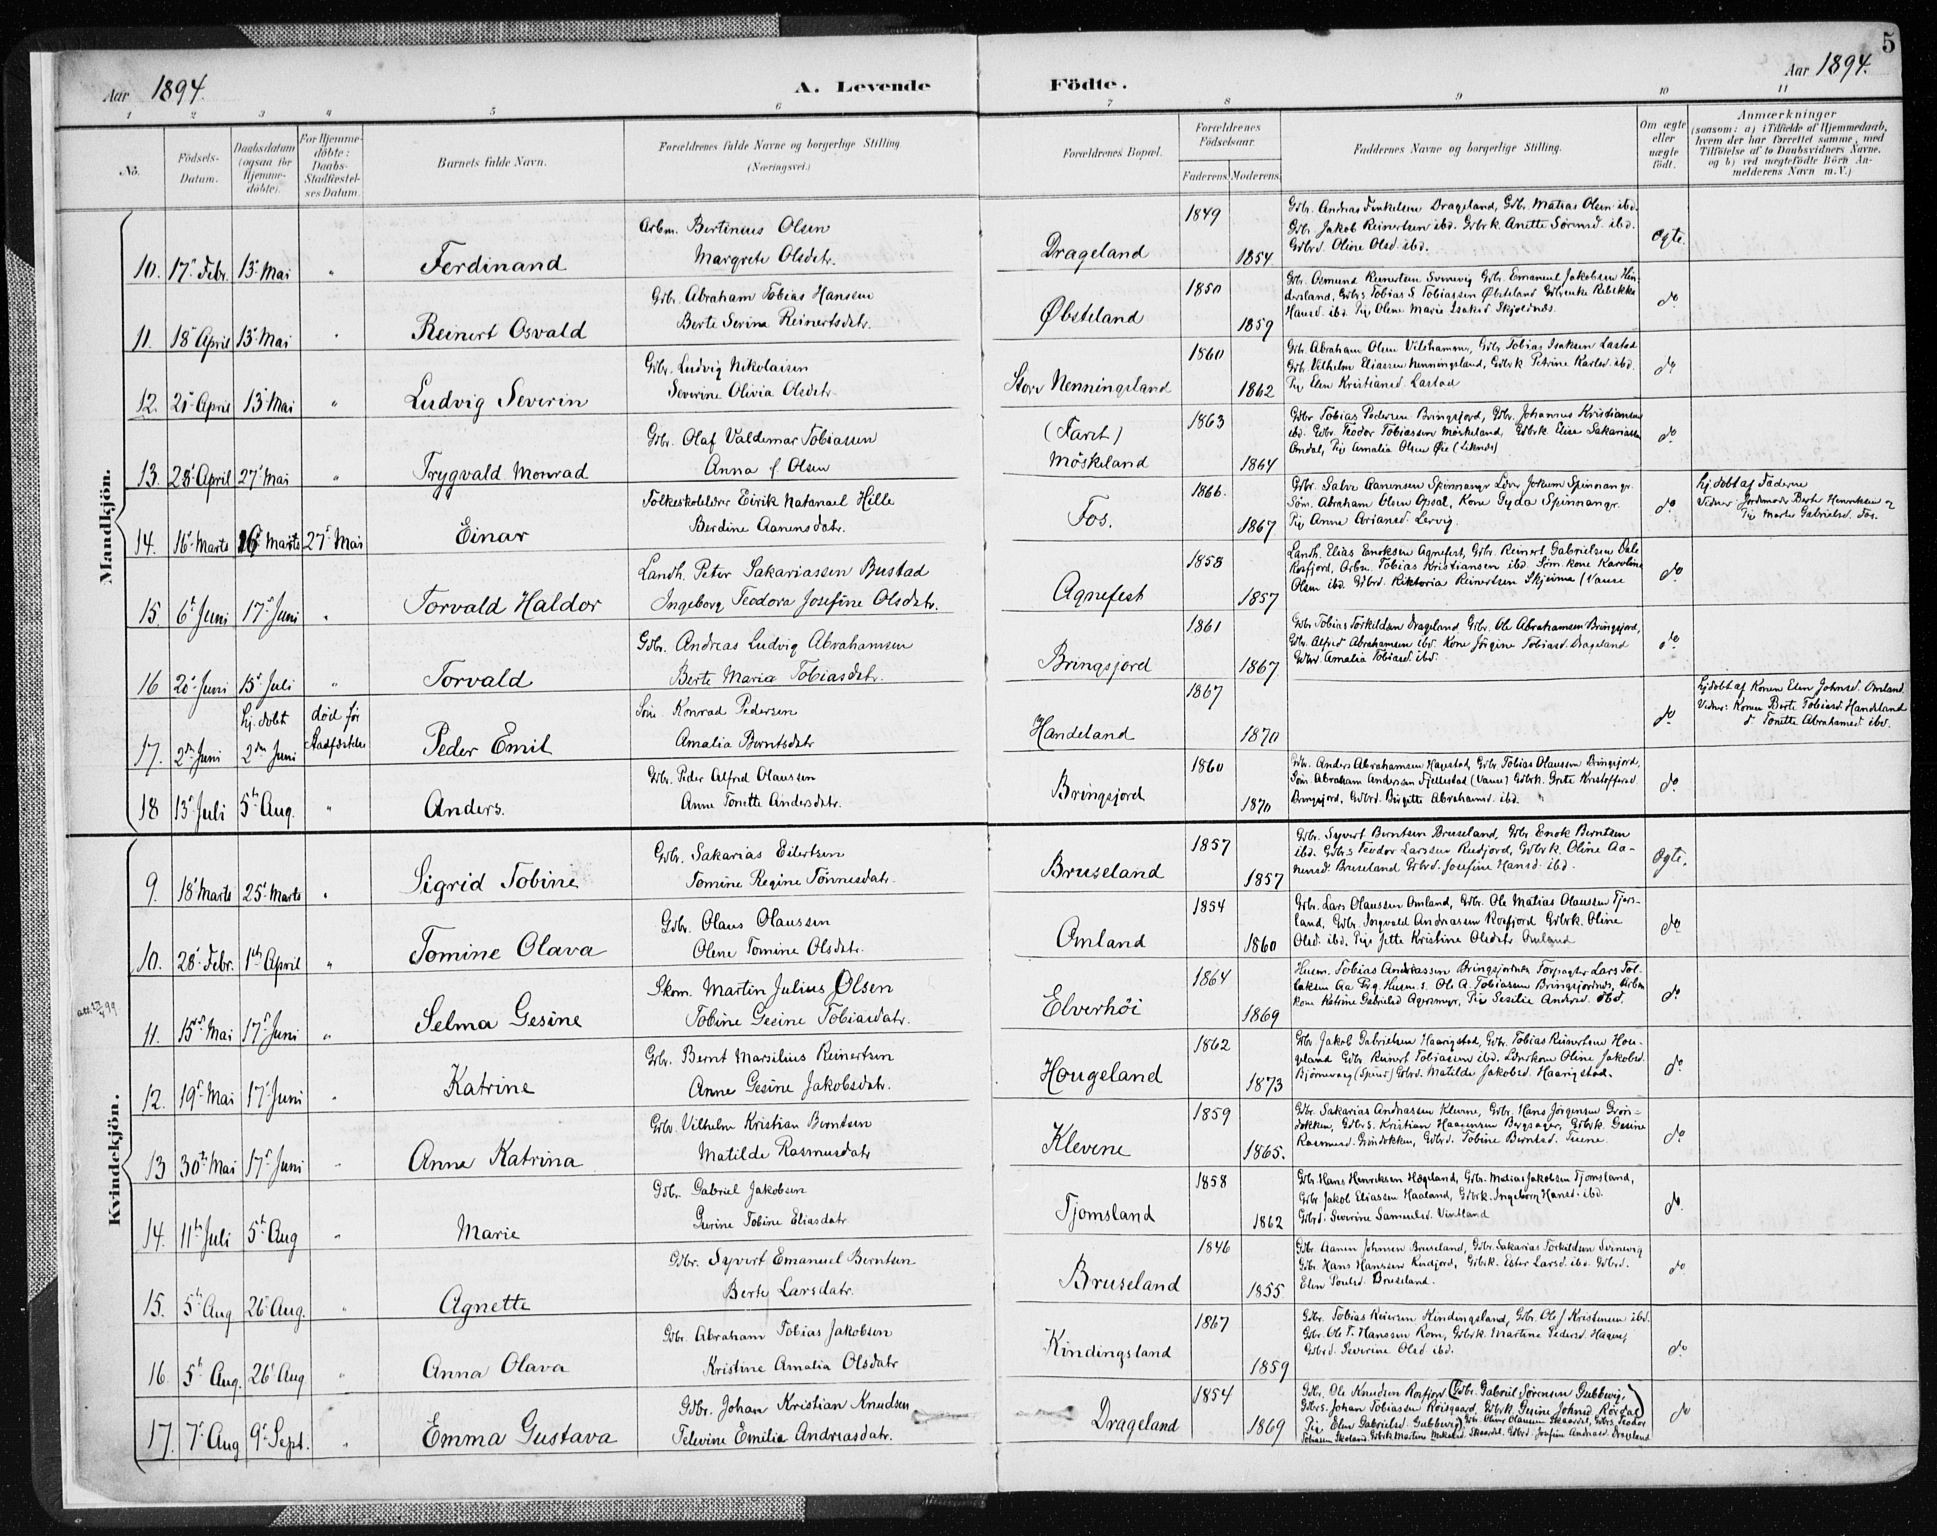 5
Aar 1894. A. Levende Födte. Aar 1894.
1 2 3 4 5 6 7 8 9 10 11
No. Födsels-Datum. Daabsdatum (ogsaa for Hjemme-döbte). For Hjemme-döbte: Daabs-Stadfæstel-ses Datum. Barnets fulde Navn. Forældrenes fulde Navne og borgerlige Stilling (Næringsvei.) Forældrenes Bopæl. Forældrenes Födselsaar. Faderens Moderens Faddernes Navne og borgerlige Stilling. Om ægte eller uægte födt. Anmærkninger
(saasom: a) i Tilfælde af Hjemmedaab, hvem der har forrettet samme, med Tilföielse af to Daabsvidners Navne, og b) ved uægtefödte Börn An-melderens Navn m.V.)
Mandkjön.
10. 17. Febr. 13. Mai " Ferdinand Arbm. Bertinius Olsen
Margrete Olsdatr. Drageland 1849 1854 Gdbr. Andreas Drageland, Gdbr. Matias Olsen ibd.
Gdbr. Jakob Reinertsen ibd. Gdbrk. Anette Sörensd. ibd.
Gdbrd. Oline Olsd. ibd. Ægte.
11. 18. April 13. Mai " Reinert Osvald Gdbr. Abraham Tobias Hansen
Berte Serine Reinertsdatr. Øbsteland 1850 1859 Gdbr. Osmund Reinertsen Svenevig Gdbr. Emanuel Jakobsen Hin-
dersland, Gdbrs. Tobias S. Tobiassen Øbsteland Gdbrenke Rebekka
Hansd. ibd. Pig. Olene Marie Isaksd. Skjoldnes. do
12. 21. April 13. Mai " Ludvig Severin Gdbr. Ludvig Nikolaisen
Severine Olivia Olsdatr. Store Nenningsland 1860 1862 Gdbr. Abraham Olsen Vilshammer, Gdbr. Tobias Isaksen Lastad
Gdbr. Vilhelm Eliassen Nenningsland, Gdbrk. Petrine Karlsd. ibd.
Pig. Elen Kristiansd. Lastad do
13. 28. April 27. Mai " Trygvald Monrad Gdbr. Olaf Valdemar Tobiassen
Anna f. Olsen (Faret)
Möskeland 1863 1864 Gdbr. Tobias Pedersen Bringsjord, Gdbr. Johannes Kristiansen
ibd. Gdbr. Teodor Tobiassen Möskeland, Gdbrk. Elise Sakariassen
Omdal, Pig. Amalia Olsen Øie do
14. 16. Marts 16. Marts 27. Mai Einar Folkeskolelærer Eirik Natanael Hille
Berdine Aanensdatr. Fos. 1866. 1867 Gdbr. Salve Aanensen Spinnangr. Lærer Jokum Spinnangr.
Söm. Abraham Olsen Opsal, Kone Gyda Spinnangr.
Pig. Anne Ariansd. Lervig. do Hj.döbt af Faderen
Vidner Jordmoder Berte Henriksen og
Pig. Marte Gabrielsd. Fos.
15. 6. Juni 17. Juni " Torvald Haldor Landh. Peter Sakariassen Bustad
Ingeborg Teodora Josefine Olsdatr. Agnefest 1858 1857 Landh. Elias Enoksen Agnefest, Gdbr. Reinert Gabrielsen Dale
Rosfjord, Arbm. Tobias Kristiansen ibd. Söm. kone Karoline
Olsen ibd. Gdbrd. Riktoria Reinertsen Skjeime (Vanse do
16 20. Juni 15. Juli " Torvald Gdbr. Andreas Ludvig Abrahamsen
Berte Maria Tobiasdatr. Bringsjord 1861 1867 Gdbr. Tobias Torkildsen Drageland, Gdbr. Ole Abrahamsen Bringsjord,
Gdbr. Alfred Abrahamsen ibd. Kone Jörgine Tobiasd. Drageland
Gdbrd. Amalia Tobiasd. ibd. do
17. 2den Juni Hj.döbt
2den Juni död för
Stadfæstelse Peder Emil Konrad Pedersen
Amalia Berntsdatr Handeland 1867 1870 do Hj.döbt af Konen Elen Johnsd. Omland.
Vidner: Konen Berte Tobiasd. Handeland
& Tonette Abrahamsd. ibd.
18 13. Juli 5te Aug. " Anders. Gdbr. Peder Alfred Olaussen
Anne Tonette Andersdatr. Bringsjord 1860 1870 Gdbr. Anders Abrahamsen Haugstad, Gdbr. Tobias Olaussen Bringsjord,
Söm. Abraham Andersen Fjellestad (Vanse) Gdbrk. Grete Kristoffersd
Bringsjord, Gdbrd. Birgitte Abrahamsd. ibd. do
Kvindekjön.
9. 18. Marts 25. Marts " Sigrid Tobine Gdbr. Sakarias Eilertsen
Tomine Regine Tönnesdatr. Bruseland 1857 1857 Gdbr. Syvert Berntsen Bruseland, Gdbr. Enok Berntsen
ibd. Gdbrs. Teodor Larssen Rudjord, Gdbrk. Oline Aa-
nensd. Bruseland Gdbrd. Josefine Hansd. ibd Ægte.
10. 28. Febr. 1ste April " Tomine Olava Gdbr. Olaus Olaussen
Olene Tomine Olsdatr. Omland 1854 1860 Gdbr. Lars Olaussen Omland, Gdbr. Ole Matias Olaussen Tjors-
land, Gdbr. Ingvald Andreassen Rosfjord Gdbrk. Oline
Olsd. ibd. Pige Jette Kristine Olsdatr Omland do
11. 15de Mai 17de Juni " Selma Gesine Skom. Martin Julius Olsen
Tobine Gesine Tobiasdatr. Elverhöi 1864 1869 Husm. Tobias Andreassen Bringsjordnes Forpagter Lars Tol-
laksen Husm.s. Ole A. Tobiassen Bringsjordnes, Arbm
kone Katrine Gabrielsd Agersmyr, Pig. Sesilie Andrsd. ibd. do
12. 19de Mai 17. Juni " Katrine Gdbr. Bernt Marsilius Reinertsen
Anne Gesine Jakobsdatr. Hougeland 1862 1873 Gdbr. Jakob Gabrielsen Haarigstad, Gdbr. Tobias Reinertsen Hou-
geland Gdbr. Reinert Tobiassen ibd. Lærerkone Oline Jakobsd.
Björnevaag (Spind) Gdbrd. Matilde Jakobsd. Haarigstad. do
13 30te Mai 17de Juni " Anne Katrina Gdbr. Vilhelm Kristian Berntsen
Matilde Rasmusdatr Klevene 1859 1865. Gdbr. Sakarias Andreassen Klevene, Gdbr. Hans Jörgensen Grön-
dokken, Gdbrs. Kristian Haagensen Bergsager, Gdbrk. Gesine
Rasmusd. Gröndokken, Gdbrd. Tobine Berntsd. Tuene. do
14. 11te Juli 5te Aug " Marie Gdbr. Gabriel Jakobsen
Gurine Tobine Eliasdatr Tjomsland 1858 1862 Gdbr. Hans Henriksen Högeland, Gdbr. Matias Jakobsen Tjomsland,
Gdbr. Jakob Eliassen Haaland, Gdbrk. Ingeborg Hansd. ibd.
Gdbrd. Severine Samuelsd. Vintland do
15. 5te Aug 26. Aug. " Agnette Gdbr. Syvert Emanuel Berntsen
Berte Larsdatr. Bruseland 1846 1855 Gdbr. Aanen Johnsen Bruseland, Gdbr. Sakarias Torkildsen Svenevig
Gdbr. Hans Hanssen Rudjord, Gdbrk. Ester Larsd. ibd. Gdbrd.
Elen Bruseland. do
16. 5te Aug. 26. Aug " Anna Olava Gdbr. Abraham Tobias Jakobsen
Kristine Amalia Olsdatr Kindingsland 1867 1859 Gdbr. Tobias Reiersen Kindingsland, Gdbr. Ole J Kristensen ibd.
Gdbr. Ole T. Hanssen Rom, Gdbrk. Martine Pedersd.
Gdbrd. Severine Olsd ibd. do
17. 7. Aug 9. Sept. " Emma Gustava Gdbr. Johan Kristian Knudsen
Televine Emilie Andreasdatr. Drageland 1854 1869 Gdbr. Ole Knudsen Rosfjord (Gdbr. Gabriel Sörensen Gubbevig,
Gdbrs. Johan Tobiassen Röisgaard, Gdbrk. Gesine Johnsd. Rördal
Pig. Elen Gabrielsd. Gubbevig) Gdbr. Oliver Olaussen Skaardal, Gdbrs. Teodor
Tobiassen Skoland, Gdbrk. Martine Mikalsd. Skaardal. Gdbrd. Josefine Andreasd. Drageland do